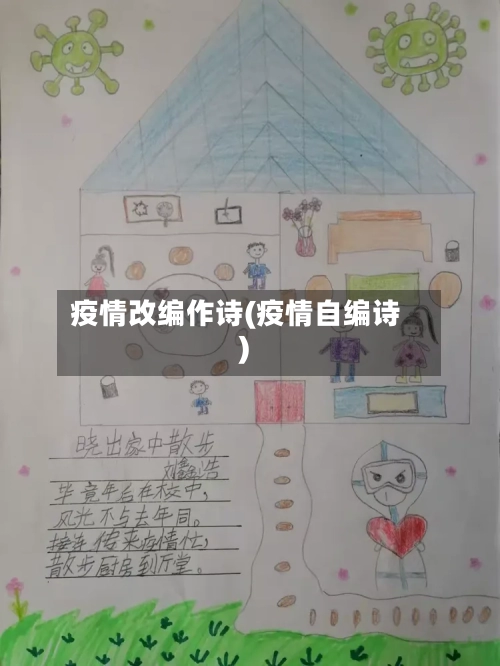 疫情改编作诗(疫情自编诗
)
晓出家中散步
毕竟年后在家中,
风光不与去年同。
接连传来疫情忙,
散步厨房到厅堂。